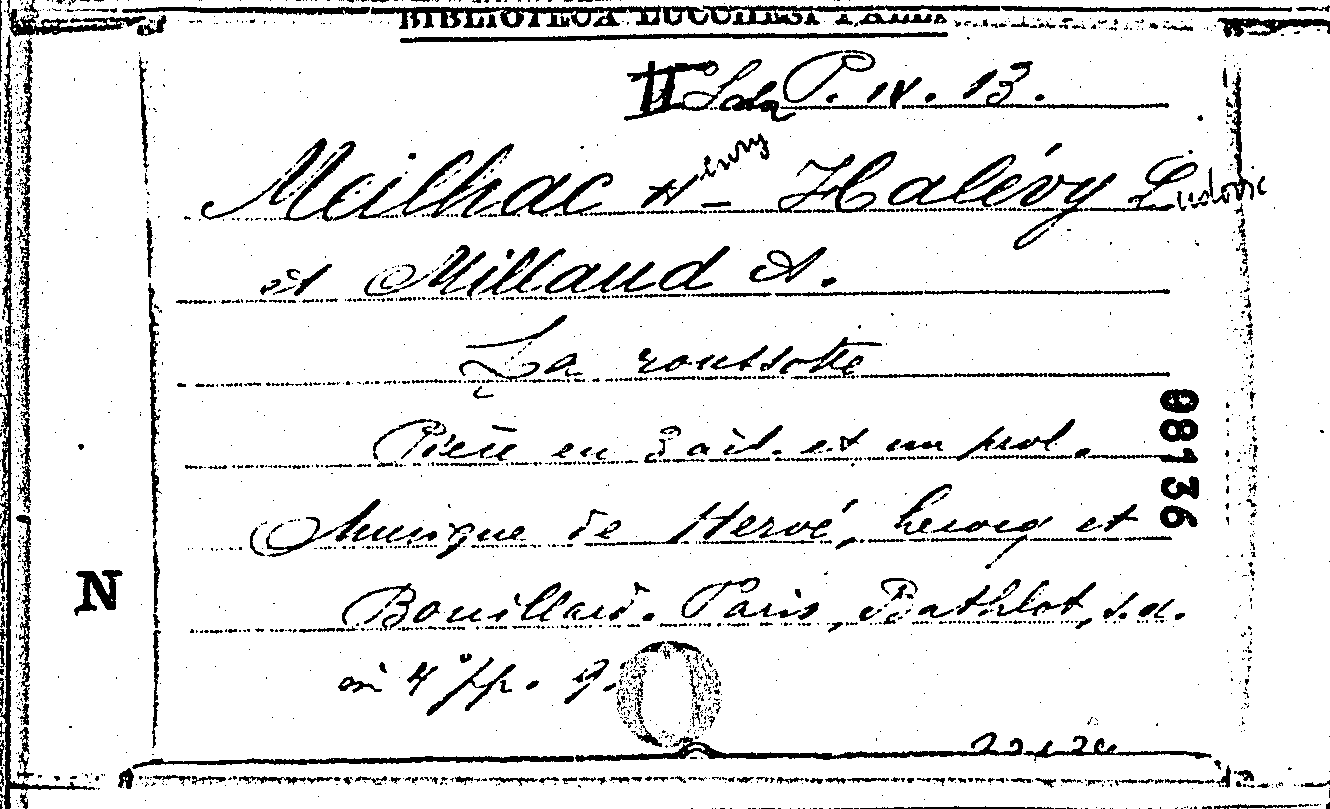 BIBLIOTECA LUCCHESI PALLI
II Sala P. IV. 13.
Meilhac Henry - Halévy Ludovic
et Millaud A.
La roussotte
Pièce en 3 act. et un prol.
Musique de Hervé, Lecocq et
Bouillard. Paris, Bathlot, s.a.
in 4° pp. 9.
98136
N